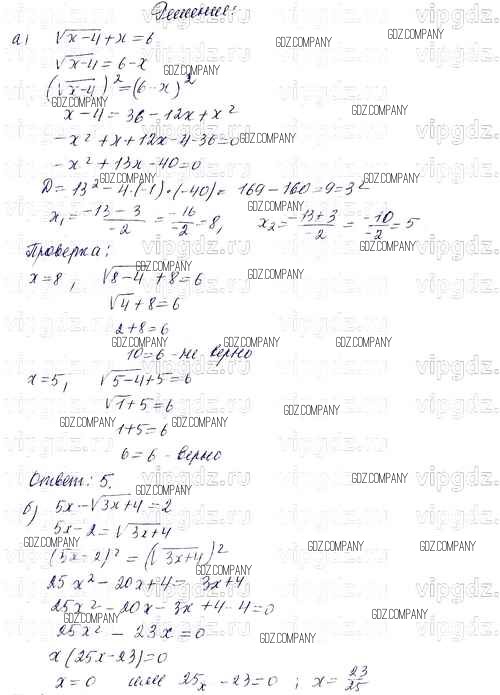 Решение:
а) √x-4 + x = 6
√x-4 = 6-x
(√x-4)² = (6-x)²
x-4 = 36-12x+x²
-x²+x+12x-4-36=0
-x²+13x-40=0
D=13²-4·(-1)·(-40)= 169-160=9=3²
x₁= -13-3/-2 = -16/-2 = 8, x₂= -13+3/-2 = -10/-2 = 5
Проверка:
x=8, √8-4 + 8 = 6
√4 + 8 = 6
2+8=6
10=6 - не верно
x=5, √5-4 + 5 = 6
√1 + 5 = 6
1+5=6
6=6 - верно
Ответ: 5.
б) 5x-√3x+4 = 2
5x-2=√3x+4
(5x-2)² = (√3x+4)²
25x²-20x+4 = 3x+4
25x²-20x-3x+4-4=0
25x²-23x=0
x(25x-23)=0
x=0 или 25x-23=0 ; x= 23/25
vipgdz.ru
GDZ.COMPANY